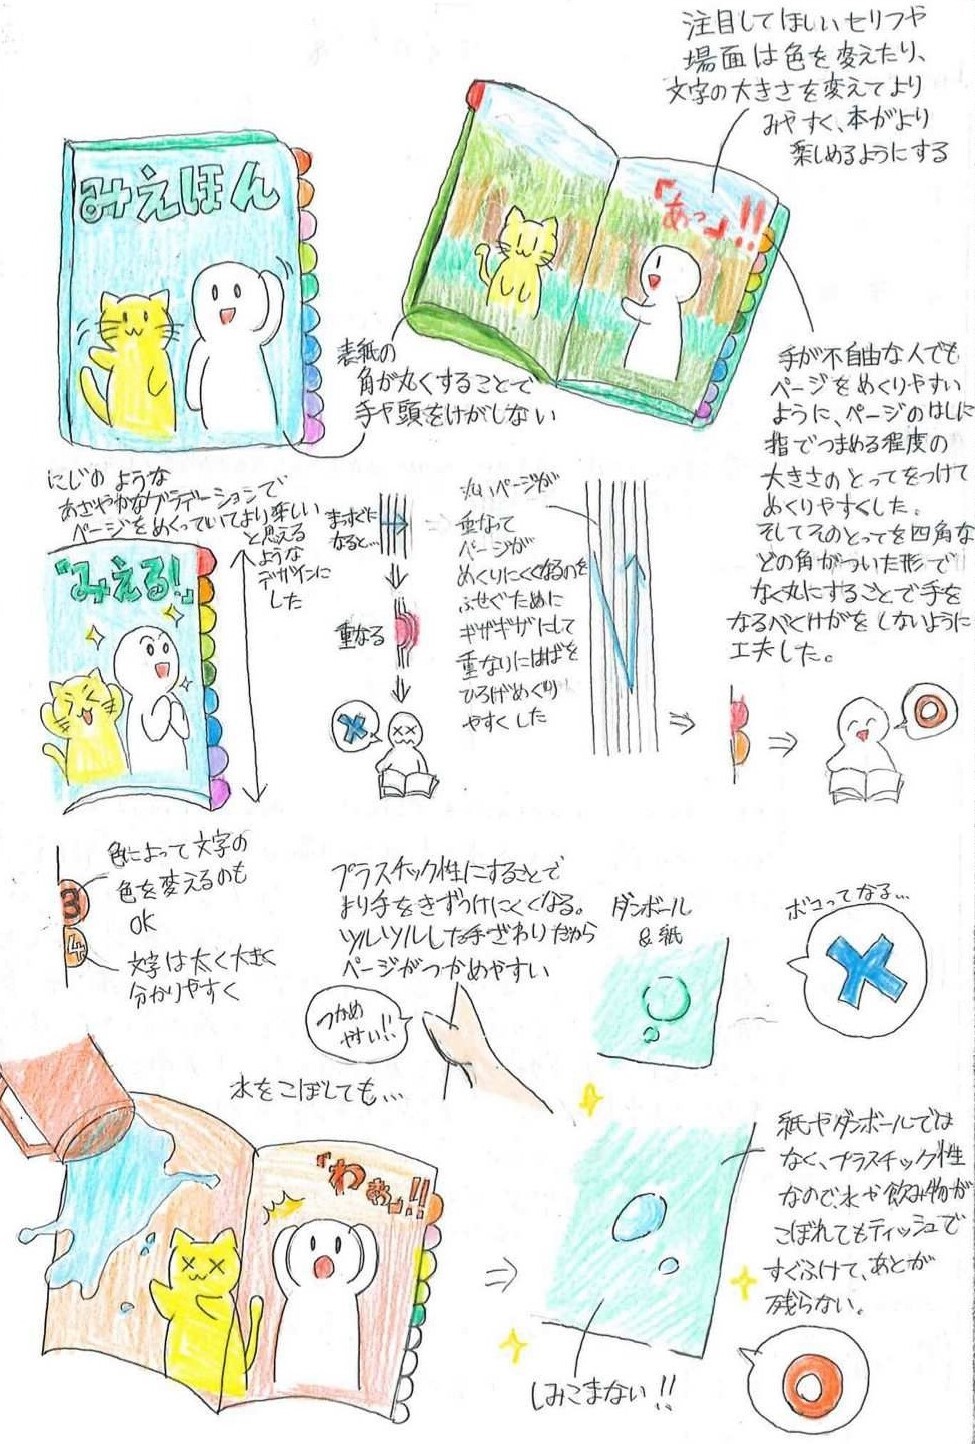 注目してほしいセリフや
場面は色を変えたり、
文字の大きさを変えてより
みやすく、本がより
楽しめるようにする
みえほん
「あっ」!!
表紙の
角が丸くすることで
手や頭をけがしない
手が不自由な人でも
ページをめくりやすい
ように、ページのはしに
指でつまめる程度の
大きさのとってをつけて
めくりやすくした。
そしてそのとってを四角な
どの角がついた形で
なく丸にすることで手を
なるべくけがをしないように
工夫した。
にじのような
あざやかなグラデーションで
ページをめくっていてより楽しい
と思える
ような
デザインに
した
「みえる!」
まっすぐに
なると…
重なる
ページが
重なって
ページが
めくりにくくなるのを
ふせぐために
ギザギザにして
重なりにはばを
ひろげめくり
やすくした
3
4
色によって文字の
色を変えるのも
OK
文字は太く大きく
分かりやすく
プラスチック性にすることで
より手をきずつけにくくなる。
ツルツルした手ざわりだから
ページがつかめやすい
つかめ
やすい!!
ダンボール
&紙
ボコってなる…
水をこぼしても…
「わぁ」!!
紙やダンボールでは
なく、プラスチック性
なので、水や飲み物が
こぼれてもティッシュで
すぐふけて、あとが
残らない。
しみこまない!!